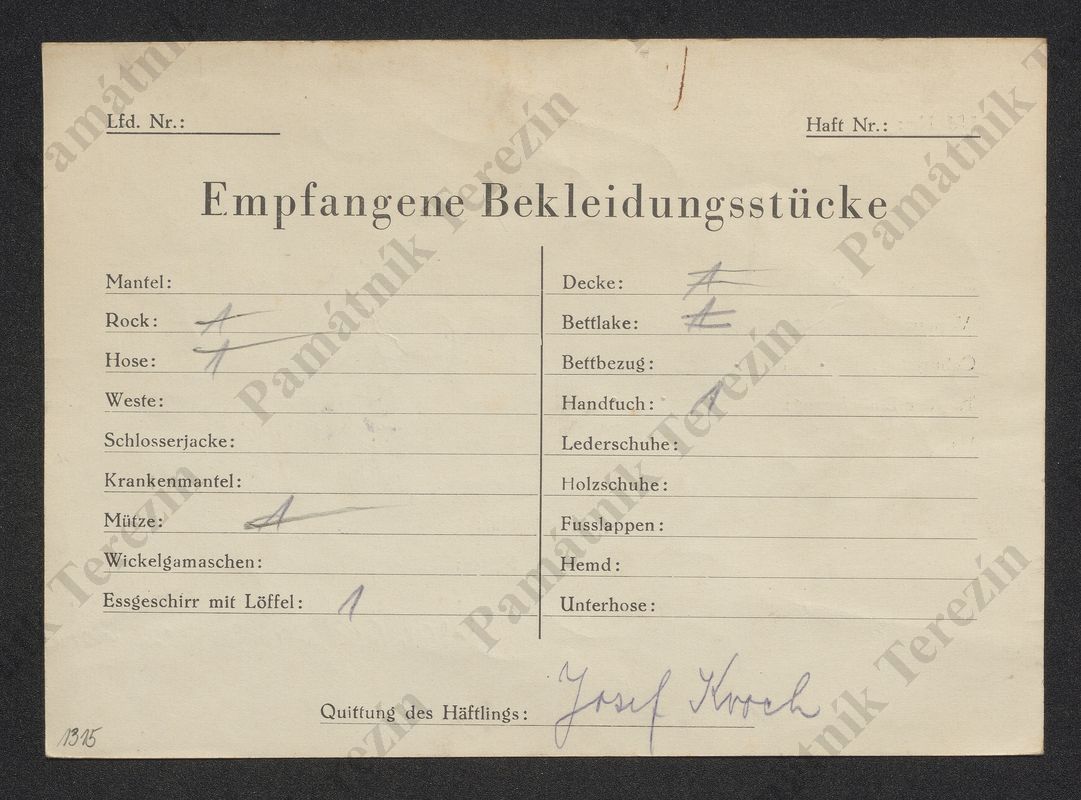 Lfd. Nr.:
Haft Nr.:
Empfangene Bekleidungsstücke
Mantel:
Rock: 1
Hose: 1
Weste:
Schlosserjacke:
Krankenmantel:
Mütze: 1
Wickelgamaschen:
Essgeschirr mit Löffel: 1
Decke: 1
Bettlake: 1
Bettbezug:
Handtuch: 1
Lederschuhe:
Holzschuhe:
Fusslappen:
Hemd:
Unterhose:
Quittung des Häftlings: Josef
1315
Památník Terezín